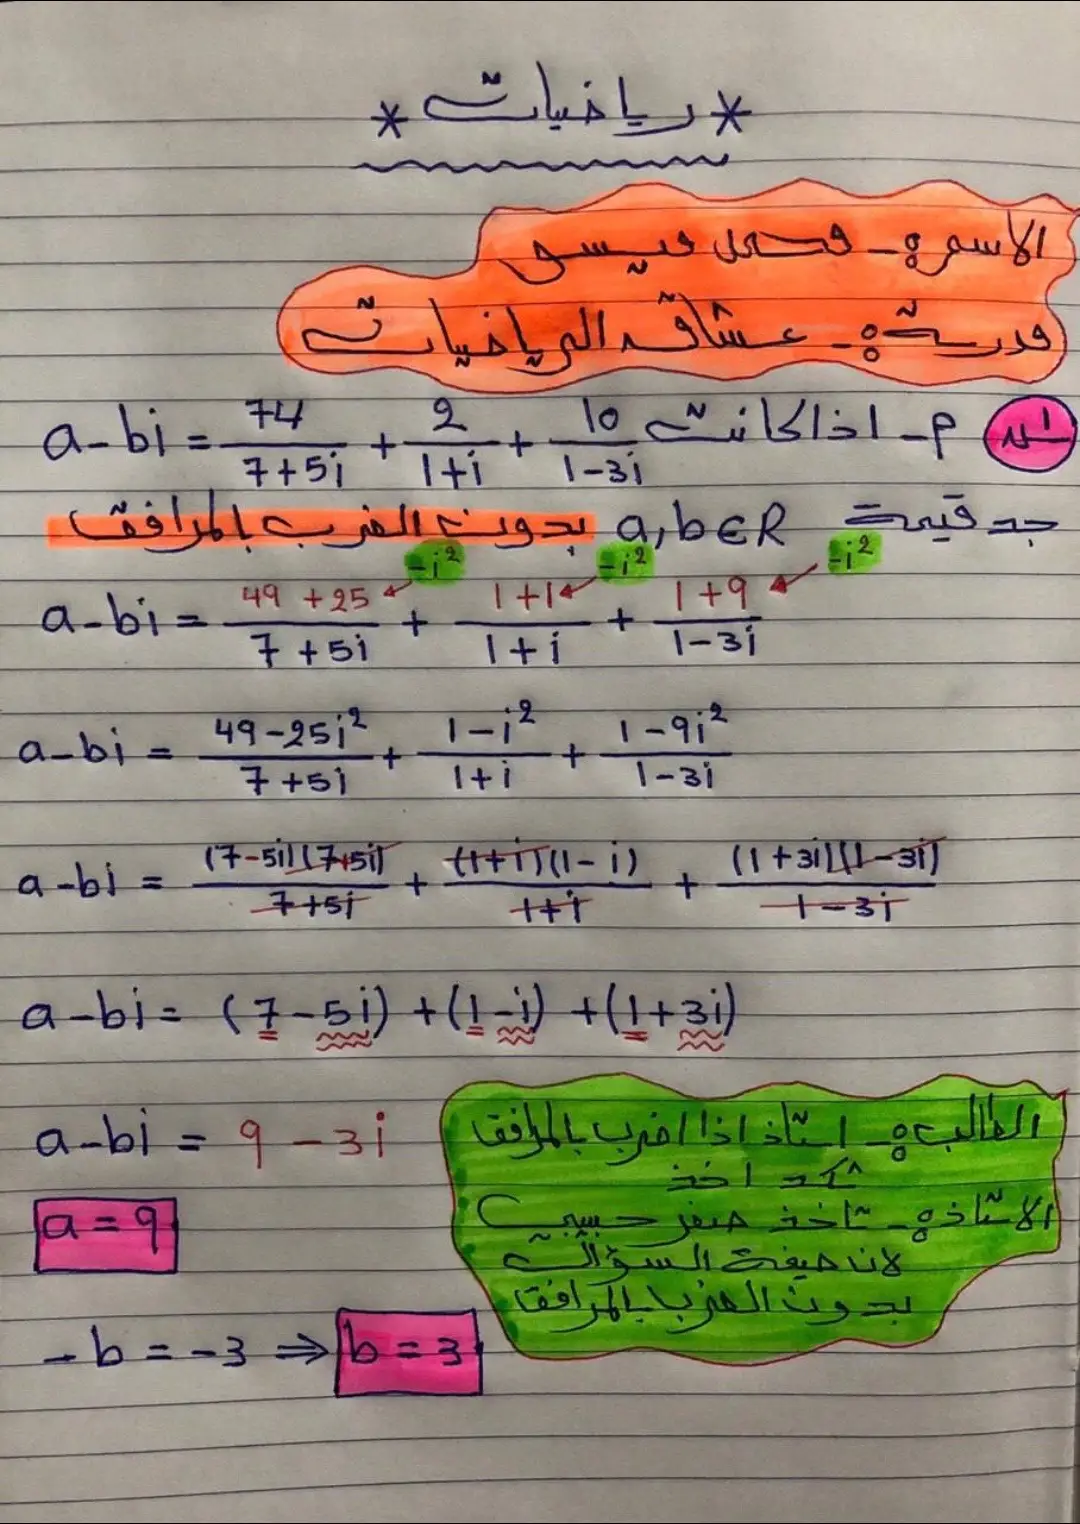 * رياضيات *
الاسم :- محمد ميسي
مدرسة :- عشاق الرياضيات
س1 م - اذا كانت a-bi = 74/(7+5i) + 2/(1+i) + 10/(1-3i)
جد قيمة a,b∈R بدون الضرب بالمرافق
-i² -i² -i²
a-bi = (49+25)/(7+5i) + (1+1)/(1+i) + (1+9)/(1-3i)
a-bi = (49-25i²)/(7+5i) + (1-i²)/(1+i) + (1-9i²)/(1-3i)
a-bi = (7-5i)(7+5i)/(7+5i) + (1+i)(1-i)/(1+i) + (1+3i)(1-3i)/(1-3i)
a-bi = (7-5i) + (1-i) + (1+3i)
a-bi = 9-3i
a=9
-b = -3 ⇒ b=3
الطالب :- استاذ اذا اضرب بالمرافق
شكد اخذ
الاستاذ :- تاخذ صفر حبيبي
لان صيغة السؤال
بدون الضرب بالمرافق